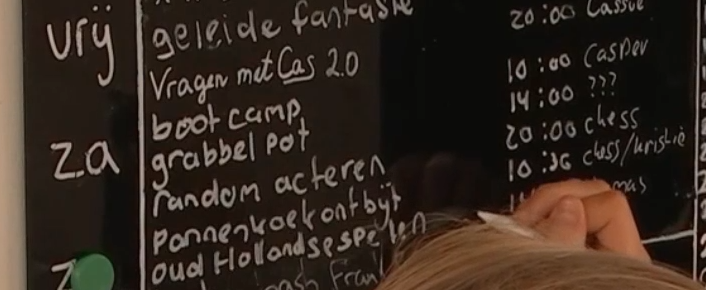 vrij geleide fantasie 20:00 Cassie
Vragen met Cas 2.0 10:00 Casper
boot camp 14:00 ???
za grabbel pot 20:00 chess
random acteren 10:30 chess/
pannenkoekontbijt
oud Hollandse spelen
Z